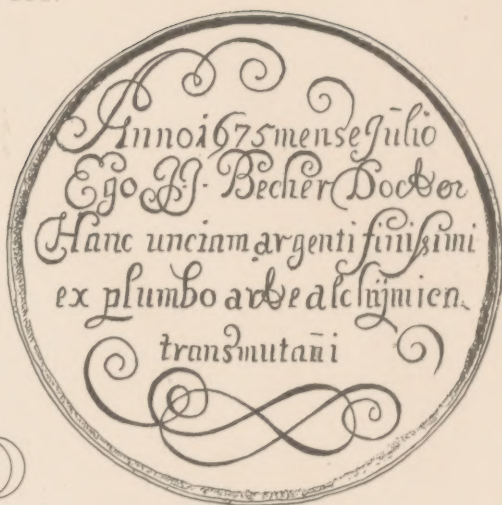 Anno 1675 mense Jūlio
Ego J.J. Becher Doctor
Hanc unciam argenti finissimi
ex plumbo arte alchijmica
transmutaūi